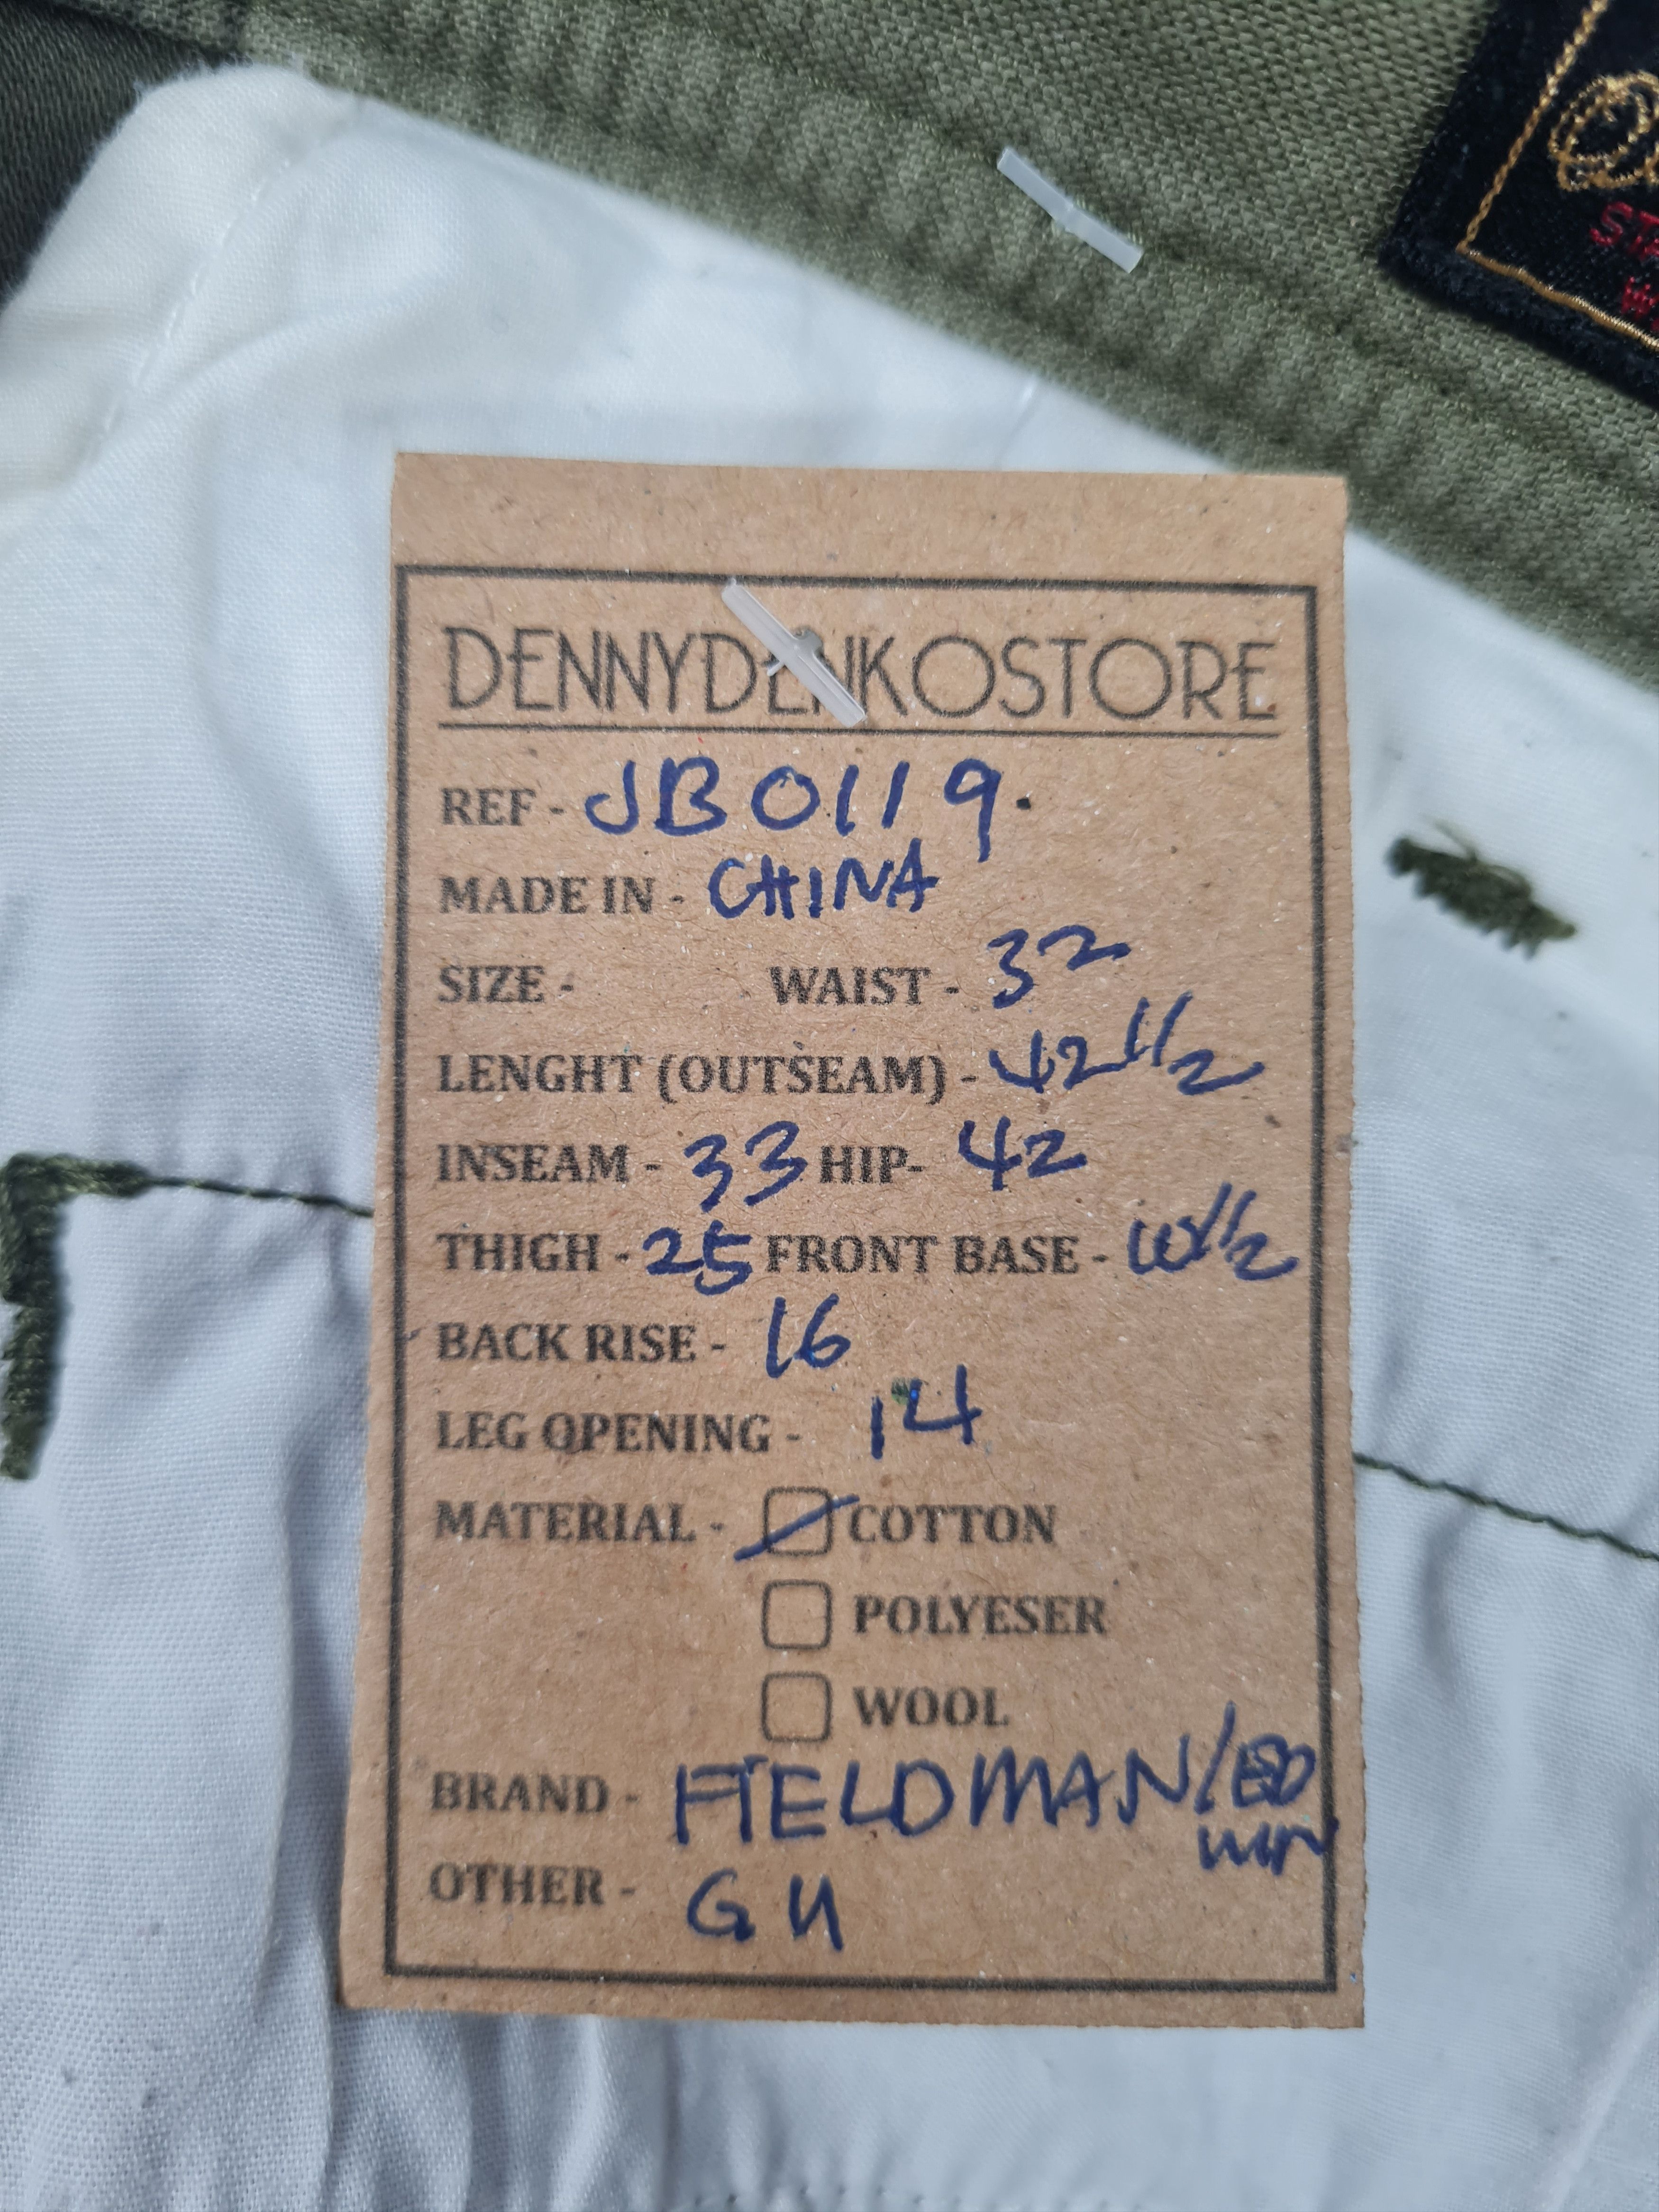 DENNYDENKOSTORE
REF - JB0119.
MADE IN - CHINA
SIZE - WAIST - 32
LENGHT (OUTSEAM) - 42 1/2
INSEAM - 33 HIP- 42
THIGH - 25 FRONT BASE - 10 1/2
BACK RISE - 16
LEG OPENING - 14
MATERIAL - COTTON
POLYESER
WOOL
BRAND - FIELDMAN/ED
WIN
OTHER - GU